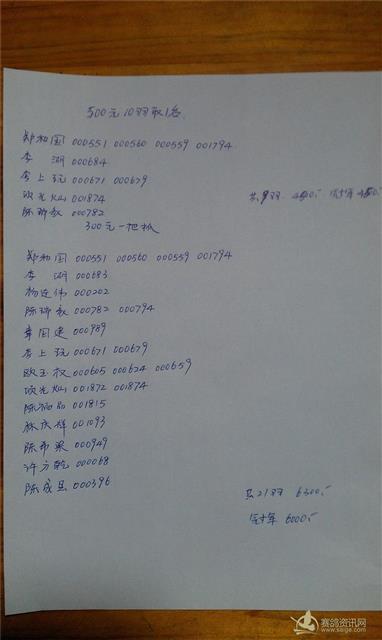 500元10羽取1名
郑和国 000551 000560 000559 001794
李 湖 000684
李上玩 000671 000679
项光灿 001874
陈瑞敏 000782
共9羽 4500.-
300元一把抓
郑和国 000551 000560 000559 001794
李 湖 000683
杨连伟 000202
陈瑞敏 000782 000794
章国建 000989
李上玩 000671 000679
欧玉权 000605 000624 000659
项光灿 001872 001874
001815
林庆祥 001093
000949
许方乾 000068
陈成昌 000396
共21羽 6300.-
冠军 6000.-
赛鸽资讯网
www.saige.com